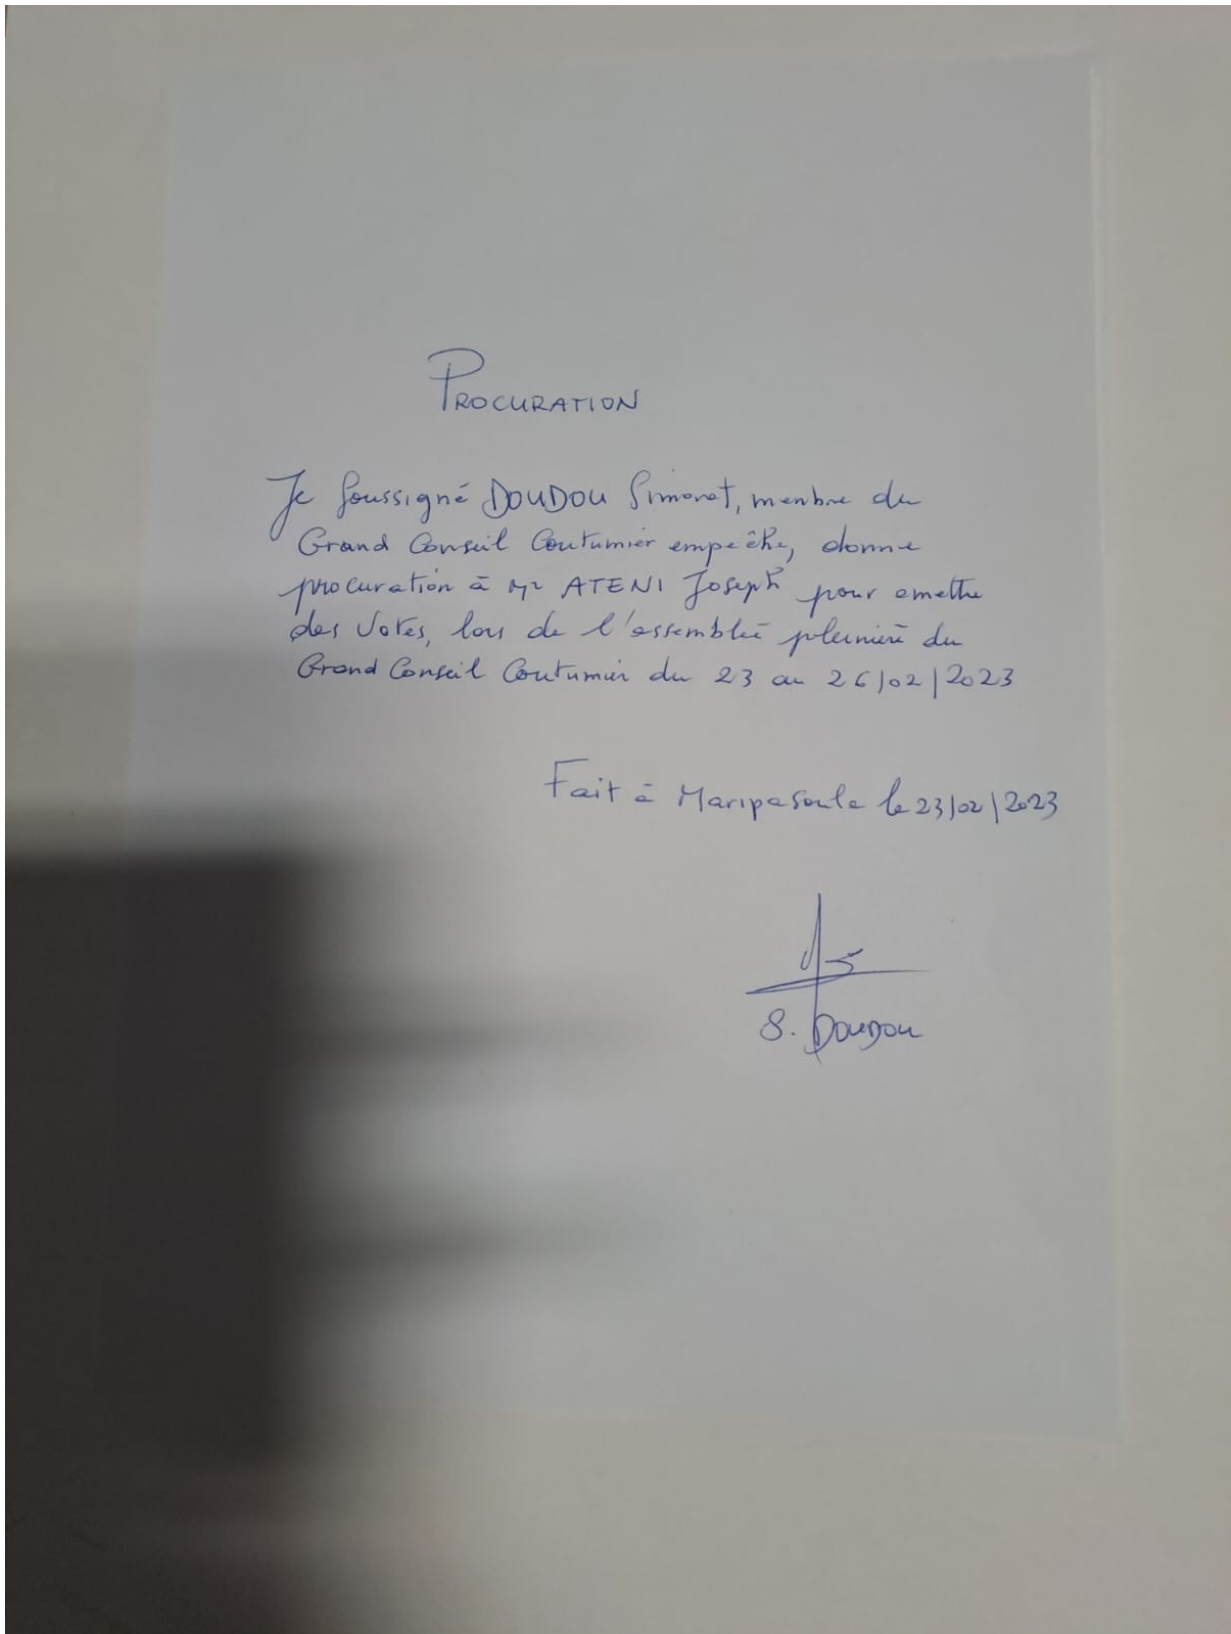 PROCURATION
Je Soussigné DOUDOU Simonet, menbre du
Grand Conseil Coutumier empêche, donne
procuration à Mr ATENI Joseph pour emettre
des Votes, lors de l'assemblée pleinière du
Grand Conseil Coutumier du 23 au 26/02/2023
Fait à Maripasoula le 23/02/2023
S. DOUDOU